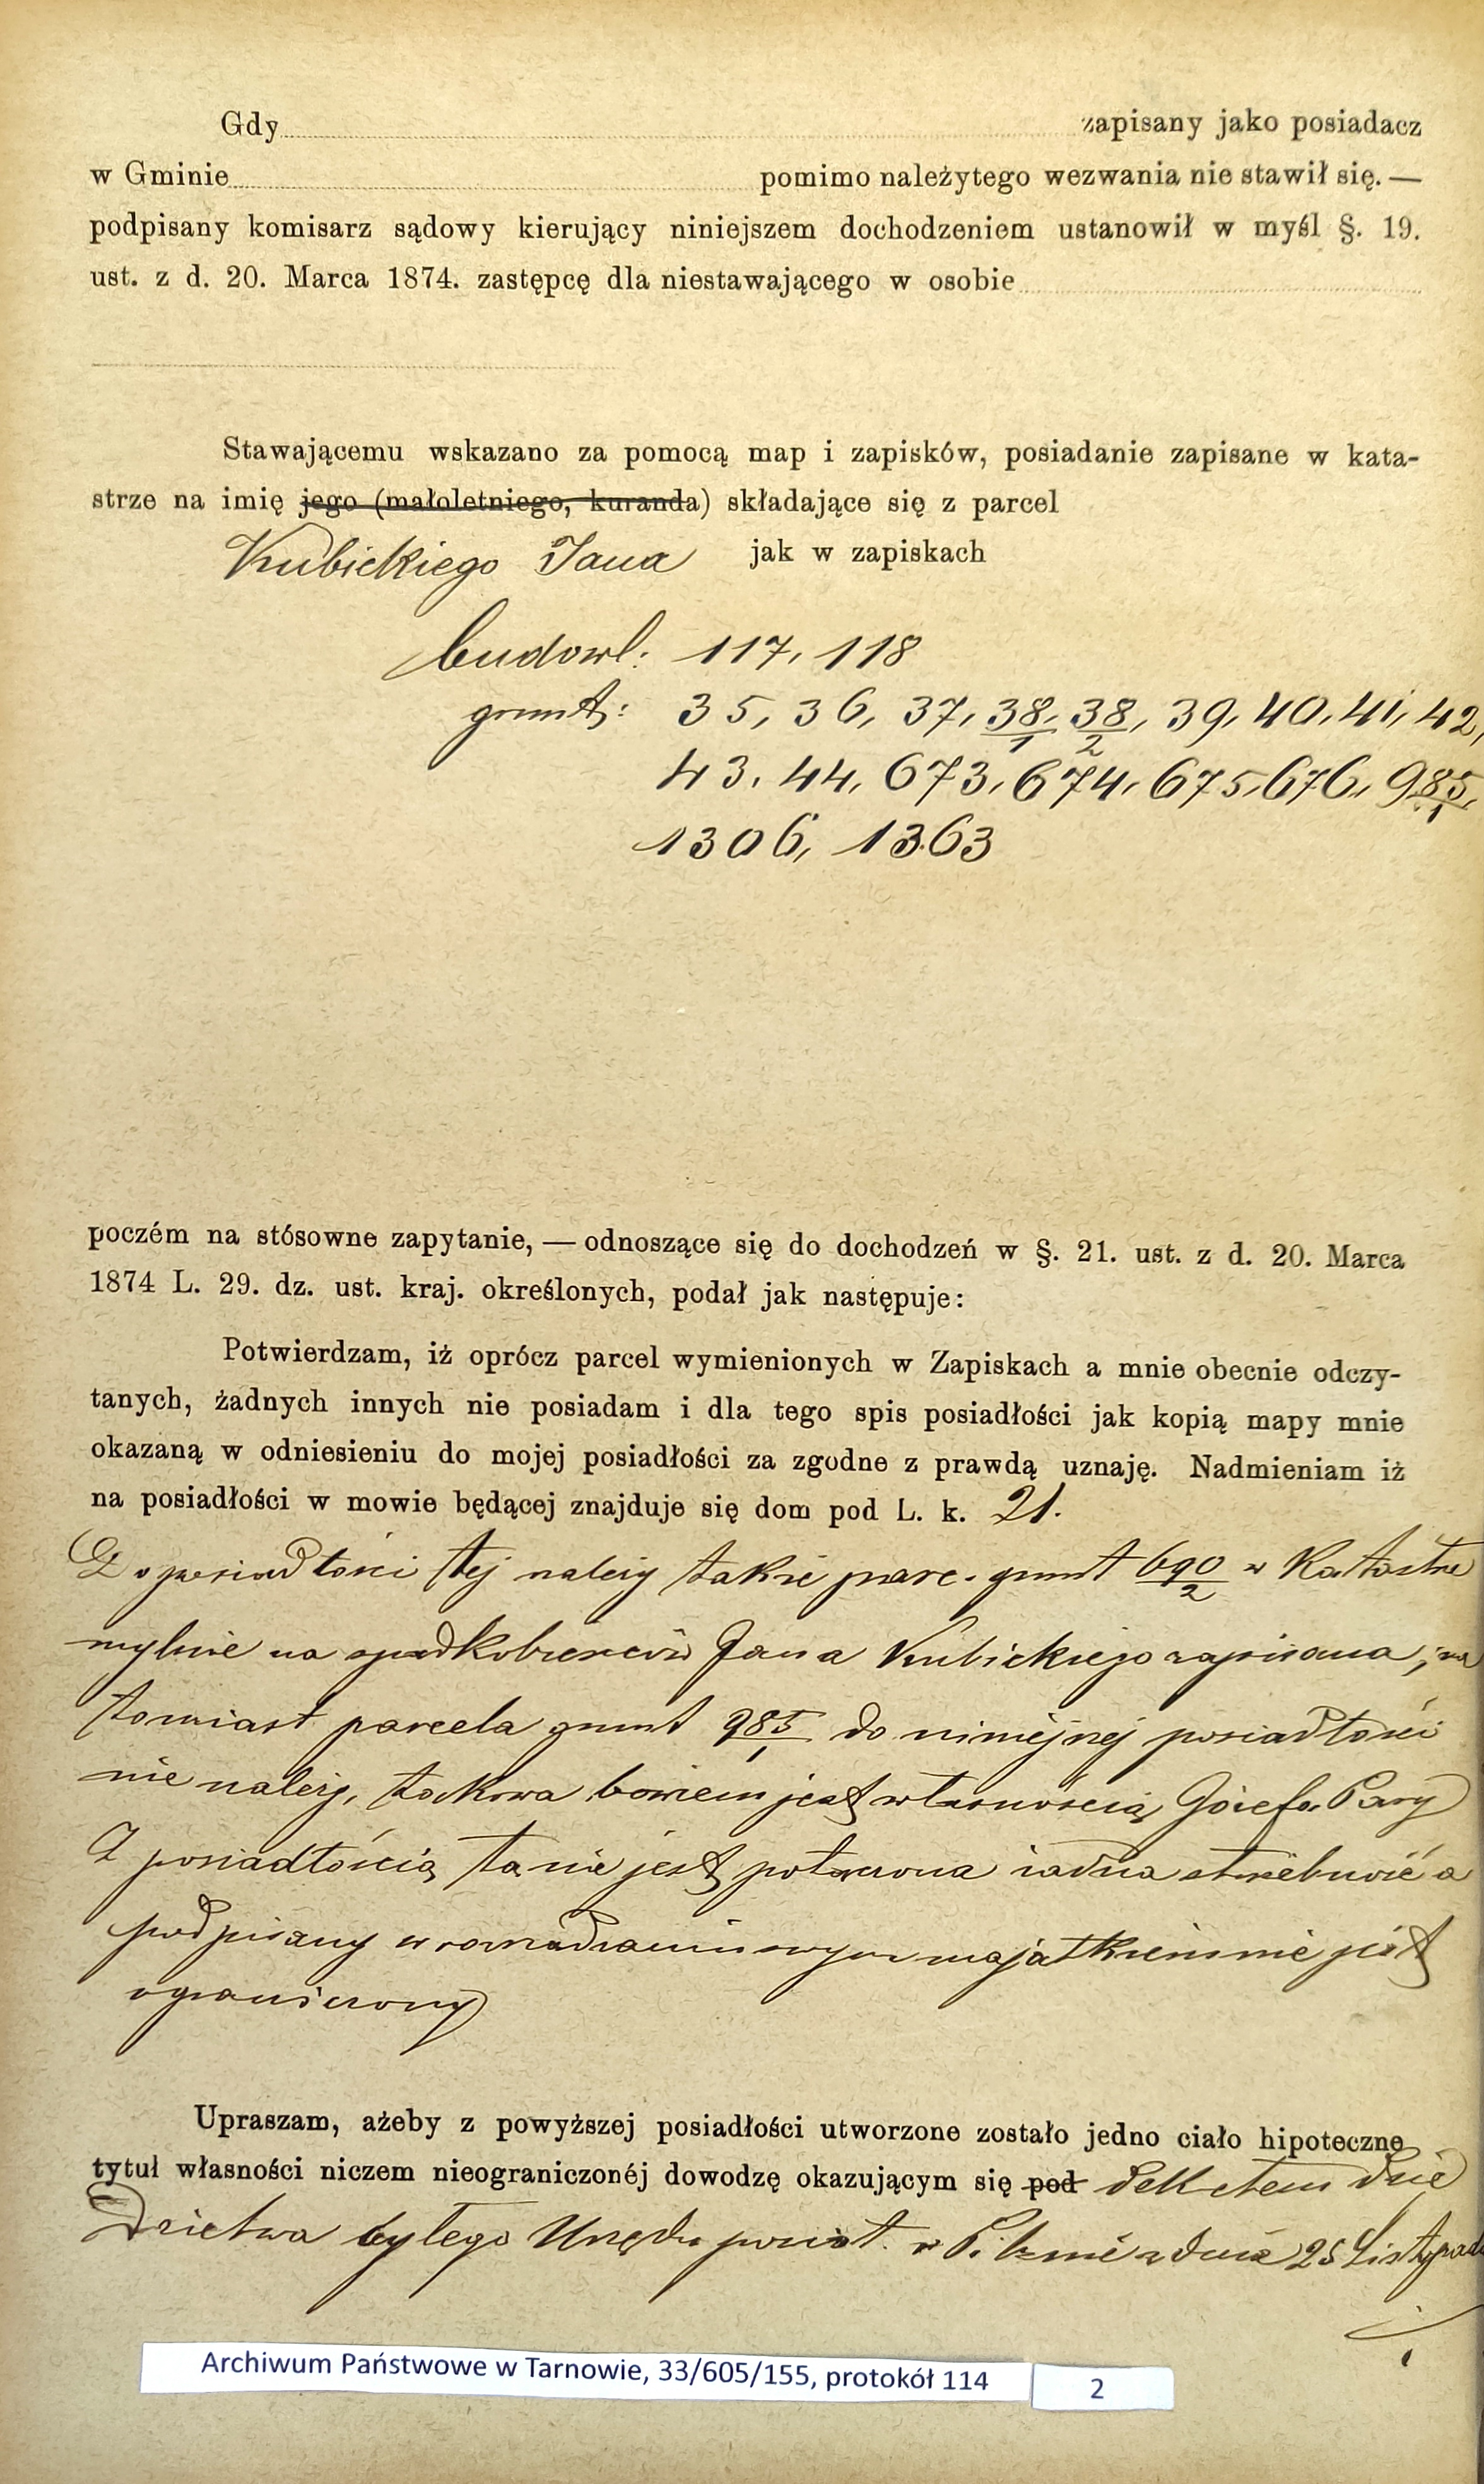 Gdy zapisany jako posiadacz
w Gminie pomimo należytego wezwania nie stawił się. —
podpisany komisarz sądowy kierujący niniejszem dochodzeniem ustanowił w myśl §. 19.
ust. z d. 20. Marca 1874. zastępcę dla niestawającego w osobie
Stawającemu wskazano za pomocą map i zapisków, posiadanie zapisane w kata-
strze na imię jego (małoletniego, kuranda) składające się z parcel
Kubickiego Jana jak w zapiskach
budowl: 117, 118
grunt: 35, 36, 37, 38/1, 38/2, 39, 40, 41, 42,
43, 44, 673, 674, 675, 676, 985/1,
1306, 1363
poczém na stósowne zapytanie, — odnoszące się do dochodzeń w §. 21. ust. z d. 20. Marca
1874 L. 29. dz. ust. kraj. określonych, podał jak następuje:
Potwierdzam, iż oprócz parcel wymienionych w Zapiskach a mnie obecnie odczy-
tanych, żadnych innych nie posiadam i dla tego spis posiadłości jak kopią mapy mnie
okazaną w odniesieniu do mojej posiadłości za zgodne z prawdą uznaję. Nadmieniam iż
na posiadłości w mowie będącej znajduje się dom pod L. k. 21.
Do posiadłości tej należy także parc. grunt 690/2 w Katastrze
mylnie na spadkobierców Jana Kubickiego zapisana, na
tomiast parcela grunt 985/1 do niniejszej posiadłości
nie należy, takowa bowiem jest własnością Józefa
Z posiadłością tą nie jest połączona żadna służebność a
podpisany w rozrządzaniu swym majątkiem nie jest
ograniczony
Upraszam, ażeby z powyższej posiadłości utworzone zostało jedno ciało hipoteczne
tytuł własności niczem nieograniczonéj dowodzę okazującym się pod dekretem dzie
dzictwa byłego Urzędu powiat. w Pilznie z dnia 25 Listopada
Archiwum Państwowe w Tarnowie, 33/605/155, protokół 114
2